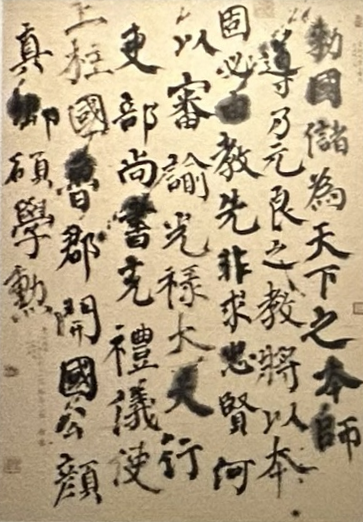 勅國儲為天下之本師
導乃元良之教將以本
固必由教先非求忠賢何
以審諭光祿大夫行
吏部尚書充禮儀使
上柱國魯郡開國公顏
真卿碩學勳